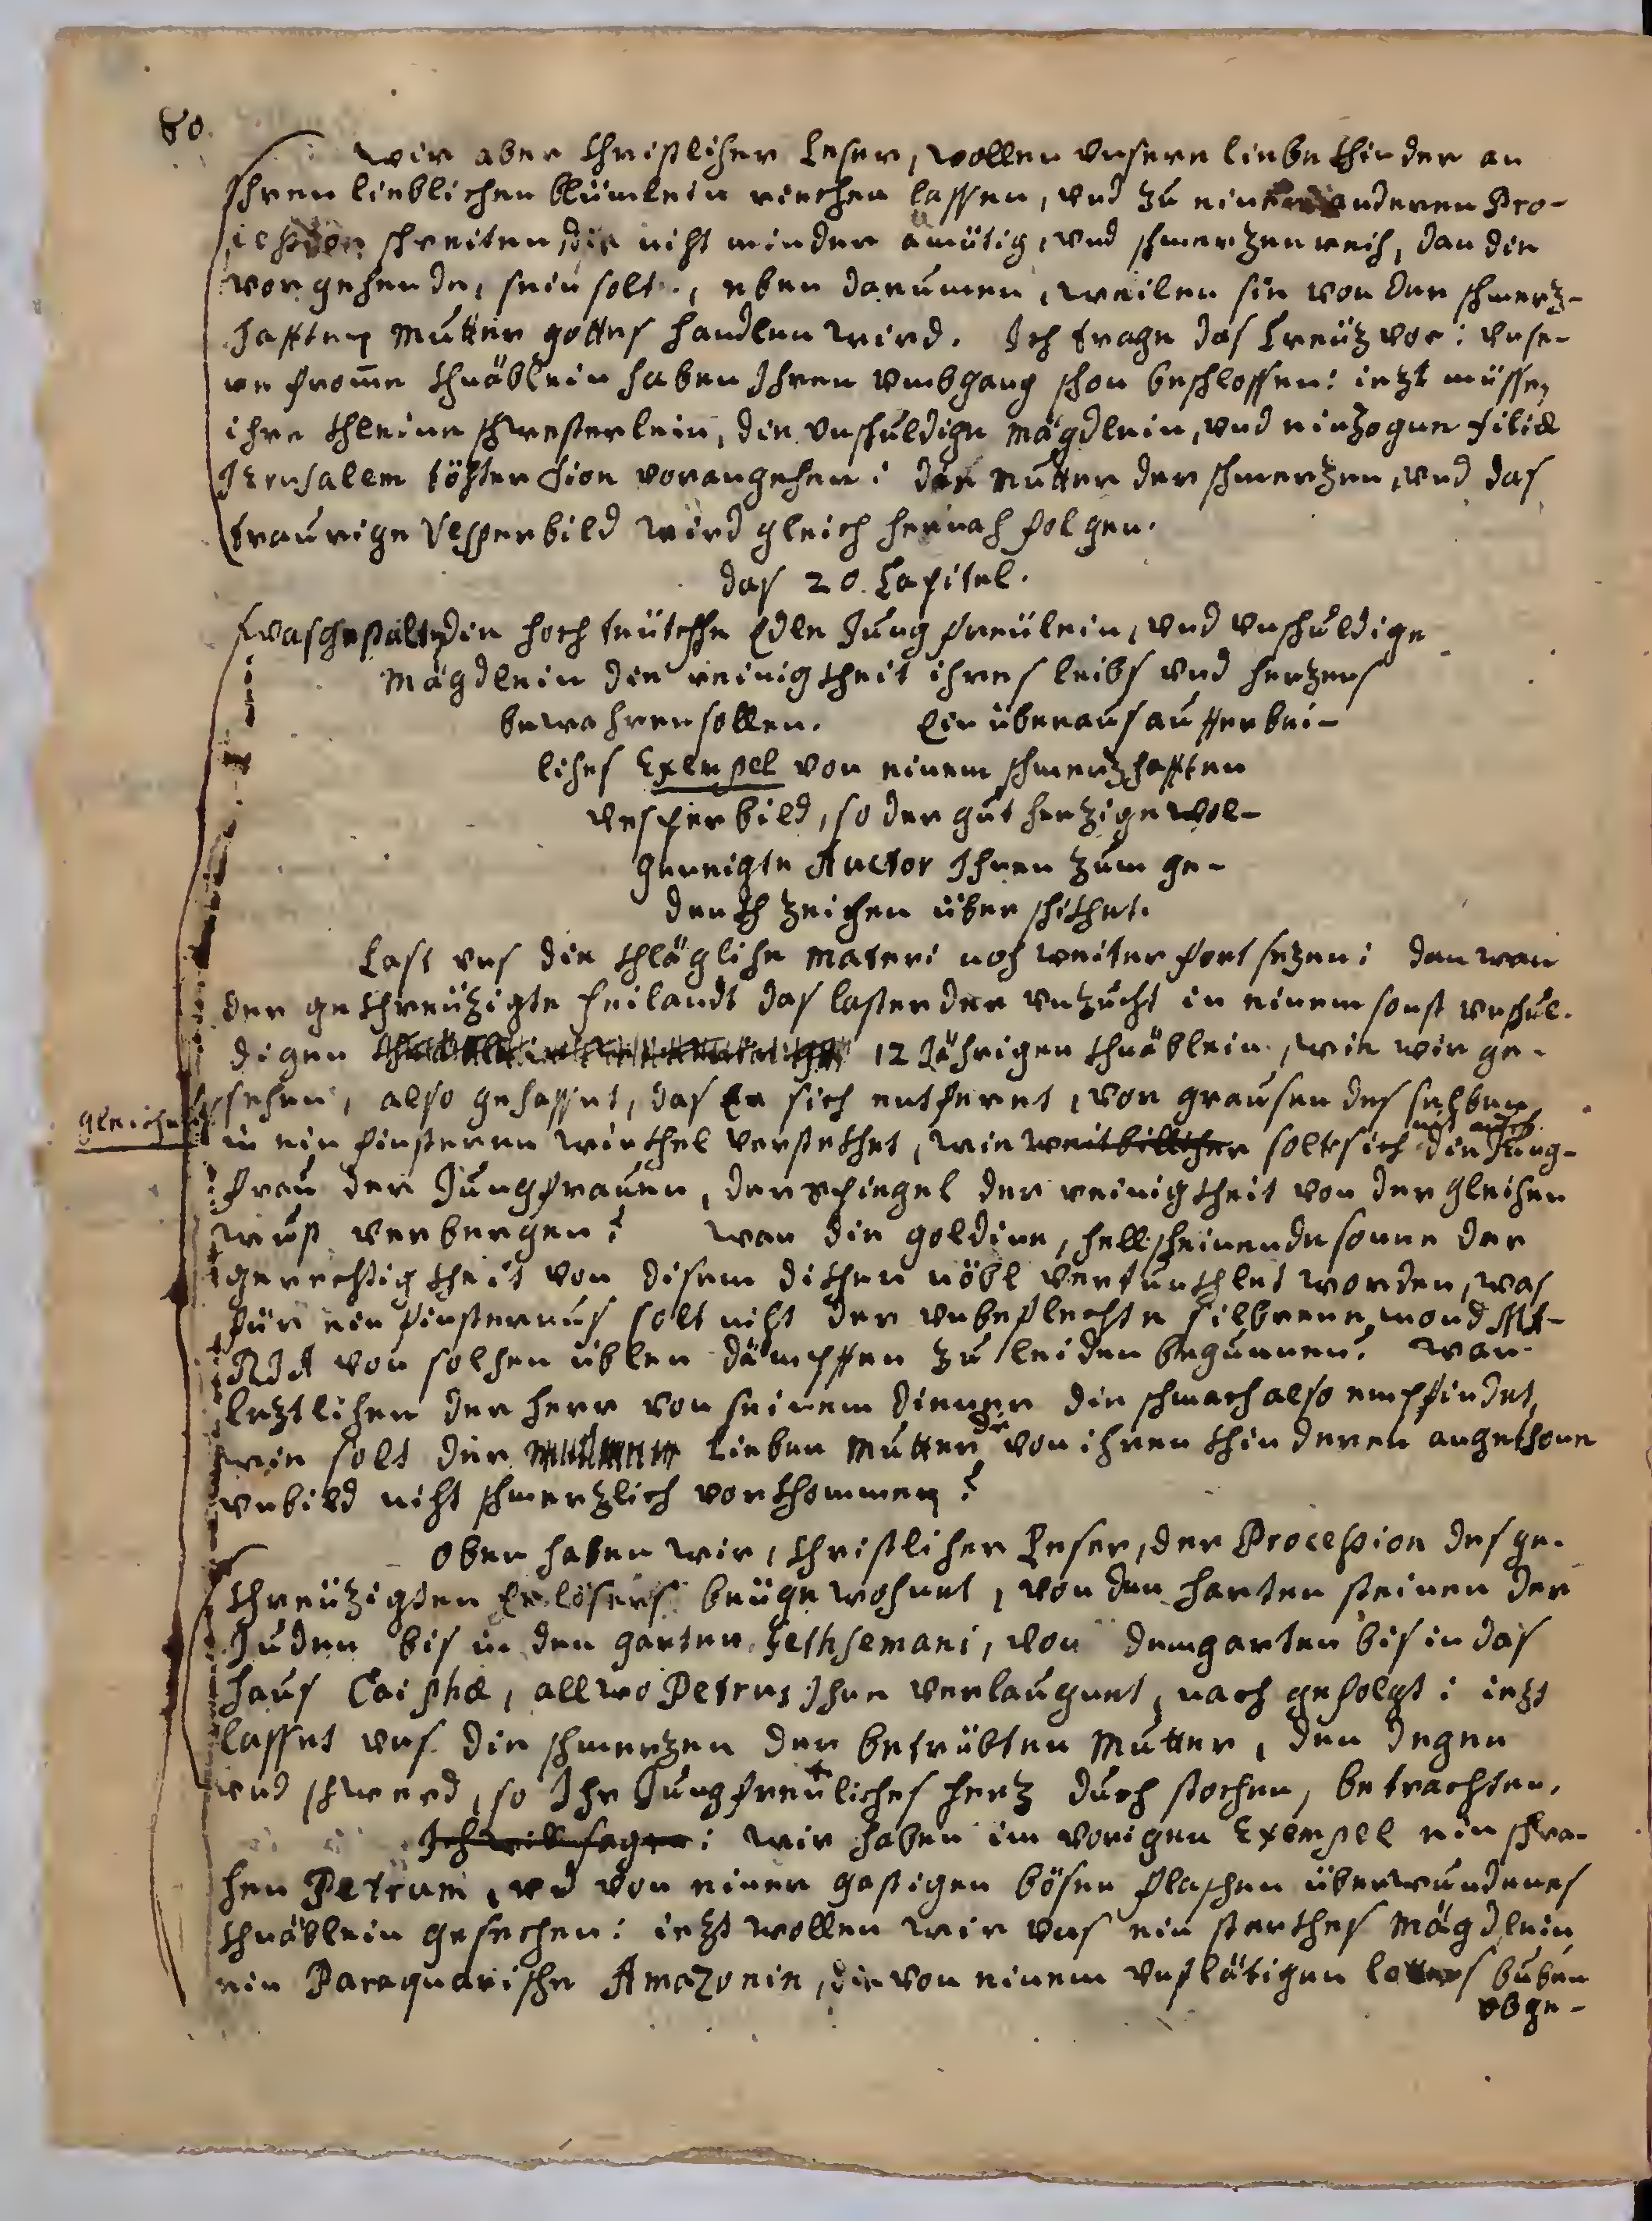 80.
Wir aber christlicher leser, wollen vnsere liebe khinder an
ihren lieblichen blümlein riechen lassen, vnd zu einer anderen Pro-
cession schreiten, die nicht minder amütig, vnd schmerzenreich, dan die
vorgehende, sein solt, eben darumen, weilen sie von der schmerz-
hafften Mutter gottes handlen wird. Ich trage das Creüz vor: vnse-
re fromme khnäblein haben Ihren vmbgang schon beschlossen: iezt müssen
ihre khleine schwesterlein, die vnschuldige Mägdlein, vnd einzogne filiæ
Jerusalem töchter Sion vorangehen: die Mutter der schmerzen, vnd das
traurige Vesperbild wird gleich hernach folgen.
das 20. Capitel.
Wasgestalten die hoch teütsche Edle Jungfreülein, vnd vnschuldige
Mägdlein die reinigkheit ihres leibs vnd herzens
bewahren sollen. Ein überaus aufferbei-
liches Exempel von einem schmerzhafften
vesperbild, so der gutherzige wol-
geneigte Auctor Ihnen zum ge-
denkhzeichen überschikhet.
Last vns die khlägliche Materi noch weiter fortsezen: dan wan
der gekhreüzigte heilandt das laster der vnzucht in einem sonst vnschul-
digen 12 Jährigen khnäblein, wie wir ge-
sehen, also gehasset, das Er sich entfernet, von grausen des selben
gleichsam
in ein finsteren winkhel verstekhet, wie weit billicher solt sich nit auch die Jung-
frau der Jungfrauen, der spiegel der reinigkheit von dergleichen
wust verbergen? Wan die goldine, hellscheinende sonne der
gerechtigkheit von disem dikhen nöbl vertunkhlet worden, was
für ein finsternus solt nicht der vnbeflechte silbrene mond MA-
RIA von solchen üblen dämpffen zu leiden begunnen? Wan
leztlichen der herr von seinem diener die schmach also empfindet,
wie solt der lieben Mutter die von ihren khinderen angethone
vnbild nicht schmerzlich vorkhommen?
Oben haben wir, christlicher Leser, der Procession des ge-
khreüzigten Erlösers beügewohnet, von den harten steinen der
Juden bis in den garten Gethsemani, von dem garten bis in das
haus Caiphæ, allwo Petrus Ihne verlaugnet, nach gefolgt: iezt
lasset vns die schmerzen der betrübten Mutter, den degen
vnd schwerd, so Ihr Jungfreuliches herz durchstochen, betrachten.
Ich will sagen: wir haben im vorigen Exempel ein schwa-
chen Petrum, vnd von einer gastigen bösen flaschen überwundenes
khnäblein gesechen: iezt wollen wir vns ein sterkhes Mägdlein
ein Paraquarische Amazonin, die von einem vnflätigen lotters buben
obge-